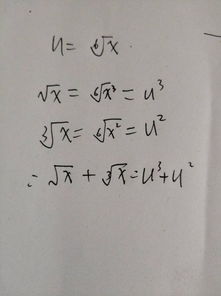 u = ⁶√x
√x = ⁶√x³ = u³
³√x = ⁶√x² = u²
∴ √x + ³√x = u³ + u²